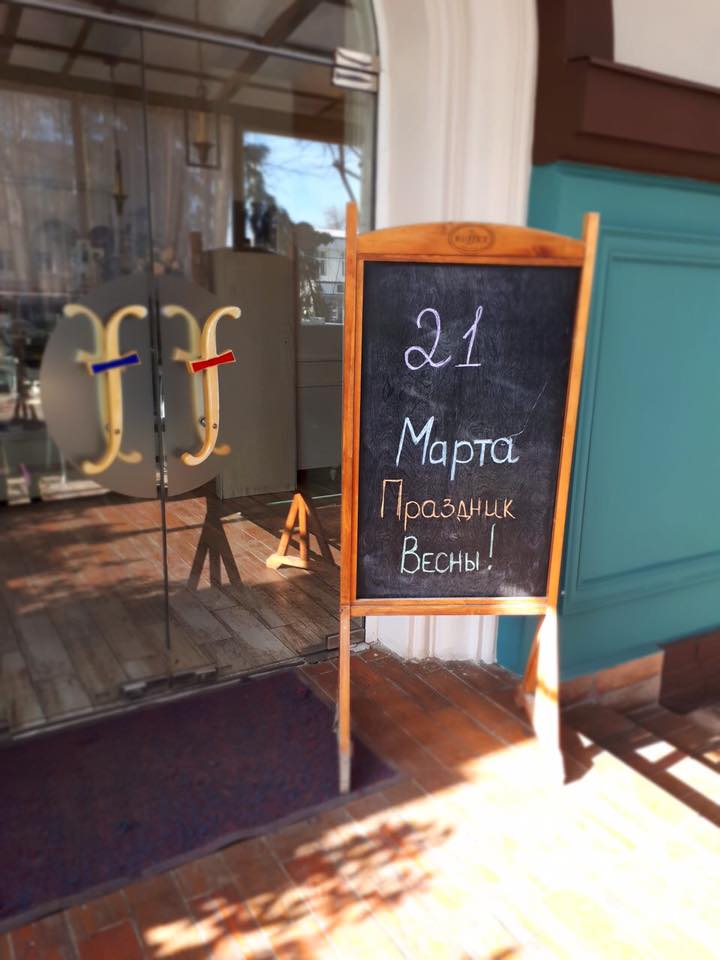 21
Марта
Праздник
Весны!